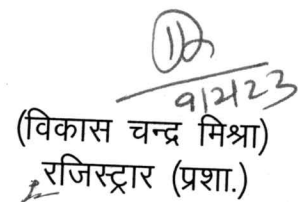 9/2/23
(विकास चन्द्र मिश्रा)
रजिस्ट्रार (प्रशा.)